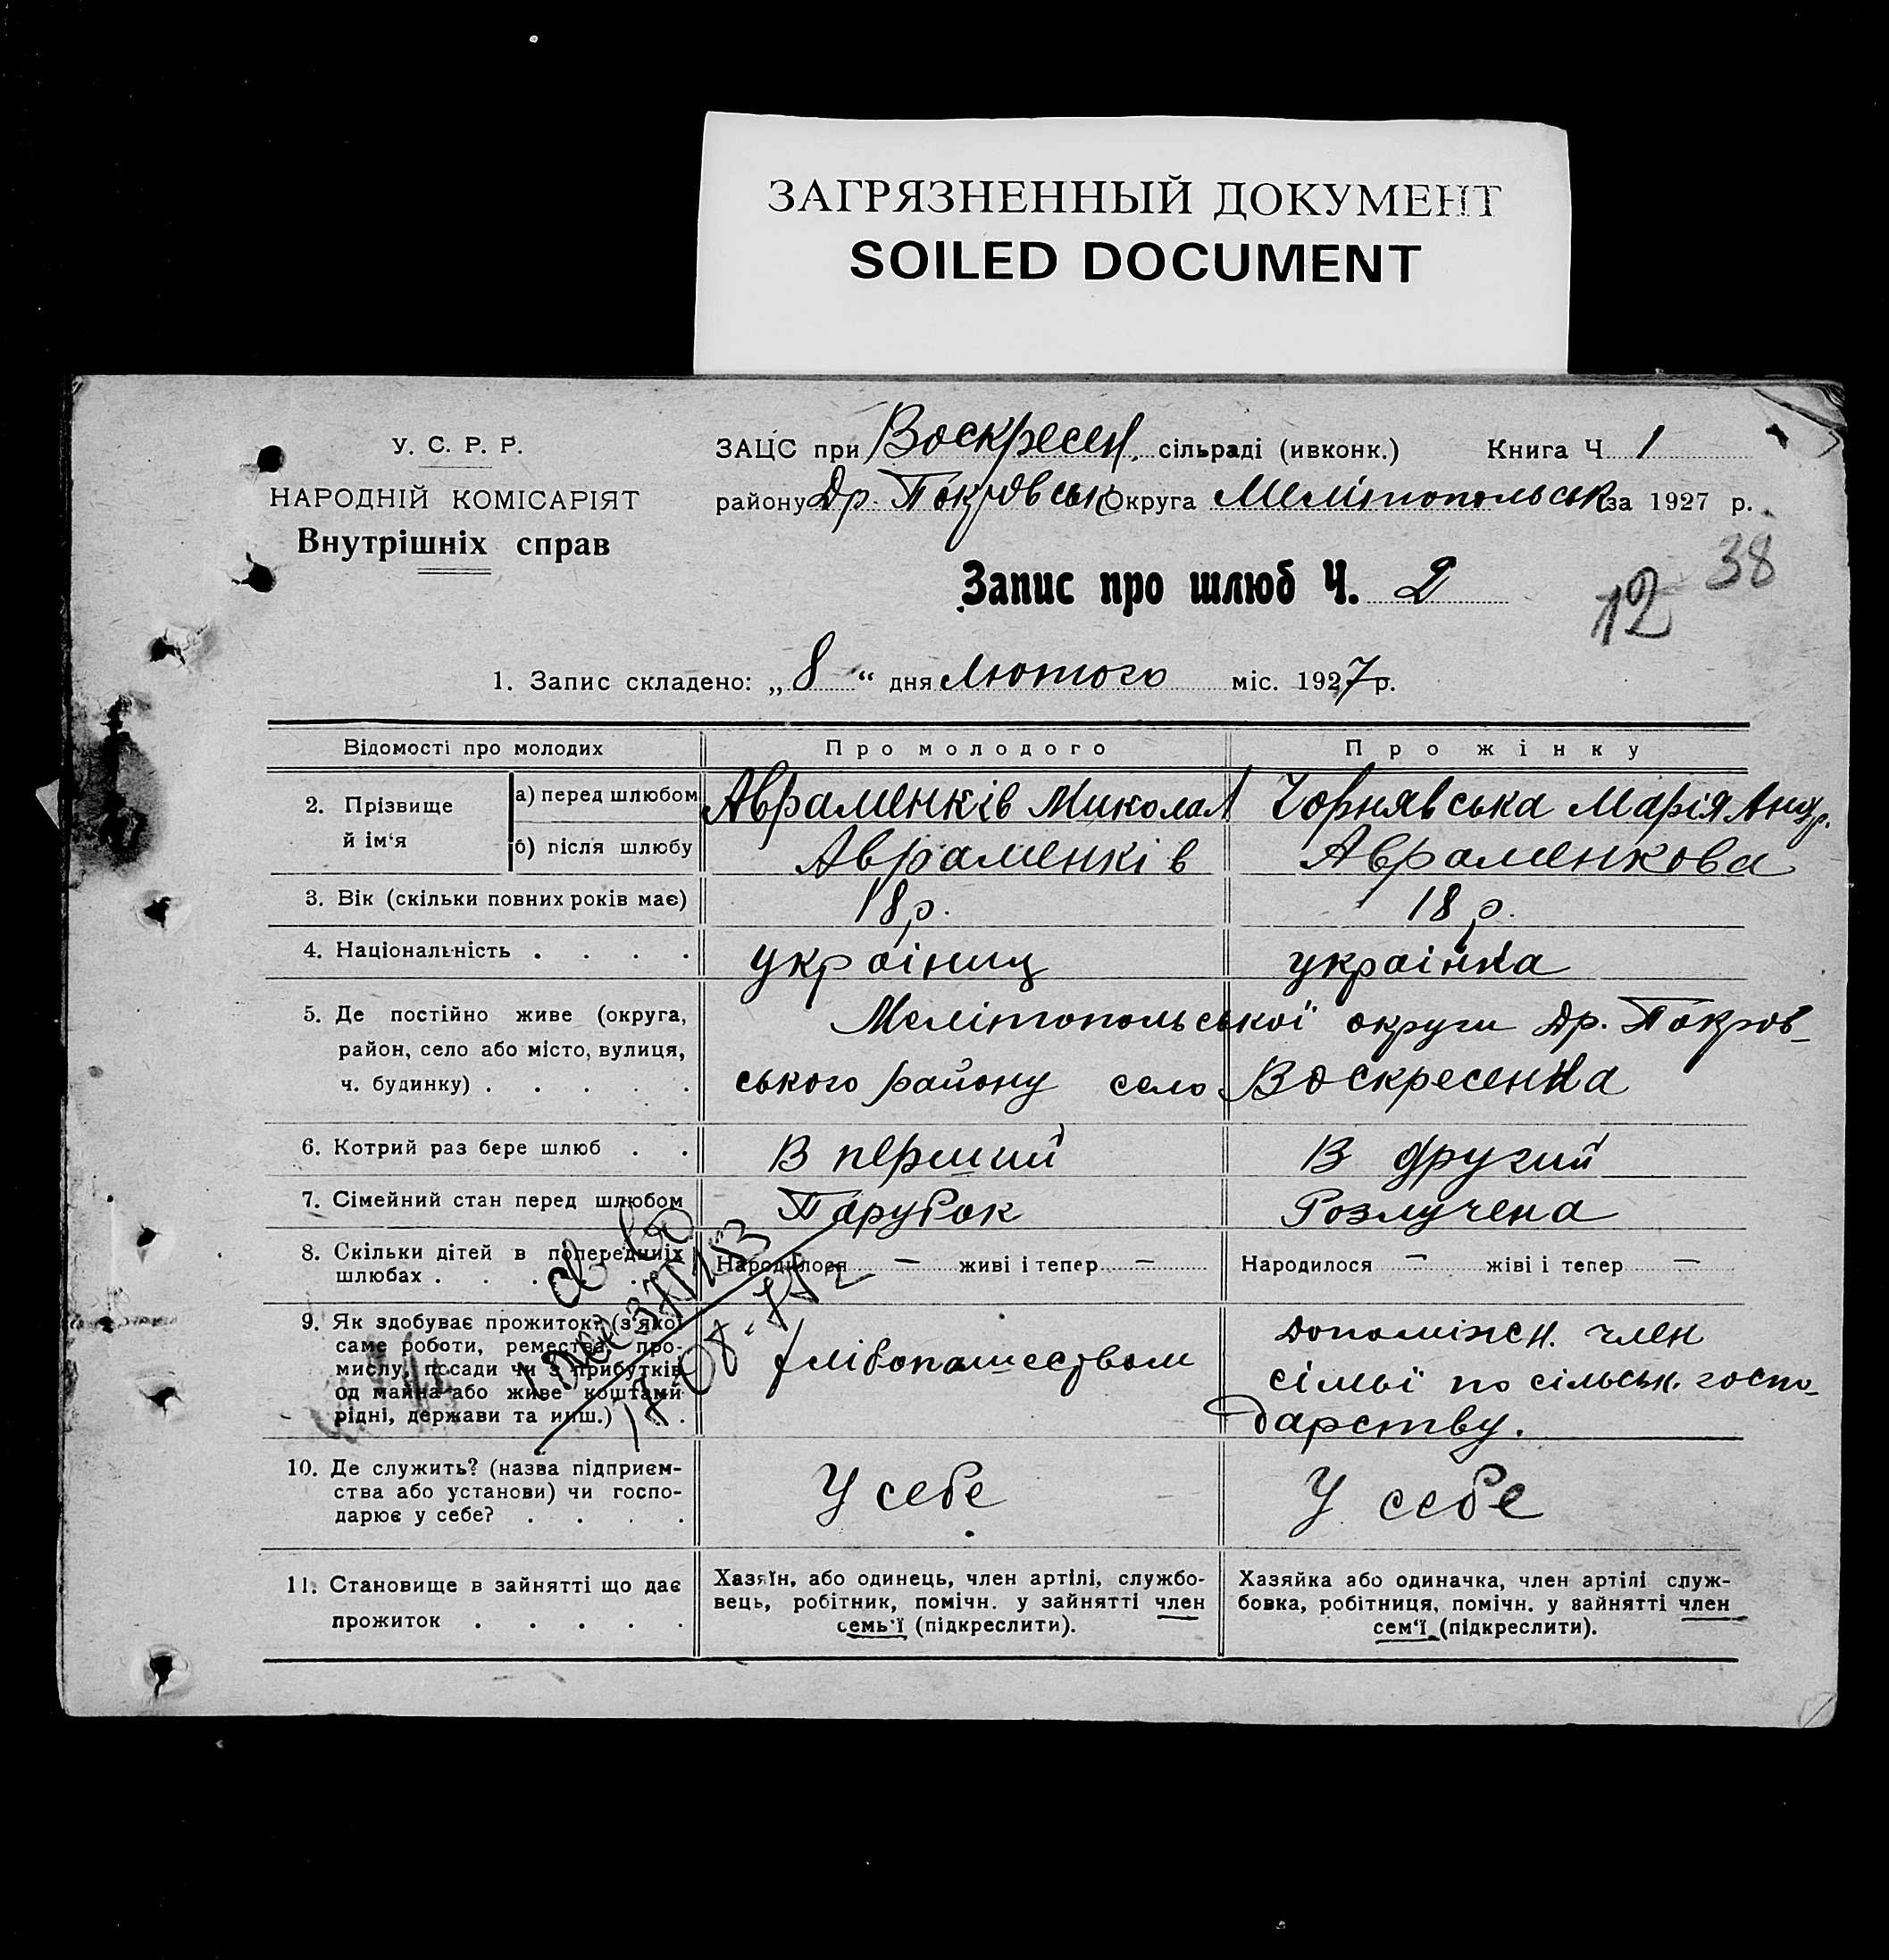 ЗАГРЯЗНЕННЫЙ ДОКУМЕНТ
SOILED DOCUMENT
У. С. Р. Р.
НАРОДНІЙ КОМІСАРІЯТ
Внутрішніх справ
ЗАЦС при Воскресен. сільраді (ивконк.) Книга Ч 1
району Др. Покровськ Округа Мелітопольськ за 1927 р.
38
Запис про шлюб Ч. 2
12
1. Запис складено: „ 8 “ дня Лютого міс. 1927 р.
Відомості про молодих Про молодого Про жінку
2. Прізвище й ім'я
а) перед шлюбом Авраменків Микола Чорнявська Марія Андр.
б) після шлюбу Авраменків Авраменкова
3. Вік (скільки повних років має) 18 р. 18 р.
4. Національність . . . . українец українка
5. Де постійно живе (округа, Мелітопольської округи Др. Покров-
район, село або місто, вулиця,
ч. будинку) . . . . . ського району село Воскресенка
6. Котрий раз бере шлюб . . В перший В другий
7. Сімейний стан перед шлюбом Парубок Розлучена
8. Скільки дітей в попередниіх Народилося — живі і тепер — Народилося — жіві і тепер —
шлюбах . . . . .
9. Як здобуває прожиток? (з якої Допоміжн. член
саме роботи, ремества, про- хлібопашеством
мислу, посади чи з прибутків сімьї по сільськ. госпо-
од майна або живе коштами
рідні, держави та инш.) . . дарству.
10. Де служить? (назва підприєм-
ства або установи) чи госпо- У себе У себе
дарює у себе? . . . .
11. Становище в зайнятті що дає Хазяїн, або одинець, член артілі, службо- Хазяйка або одиначка, член артілі служ-
вець, робітник, помічн. у зайнятті член бовка, робітниця, помічн. у зайнятті член
прожиток . . . . . семь'ї (підкреслити). сем'ї (підкреслити).